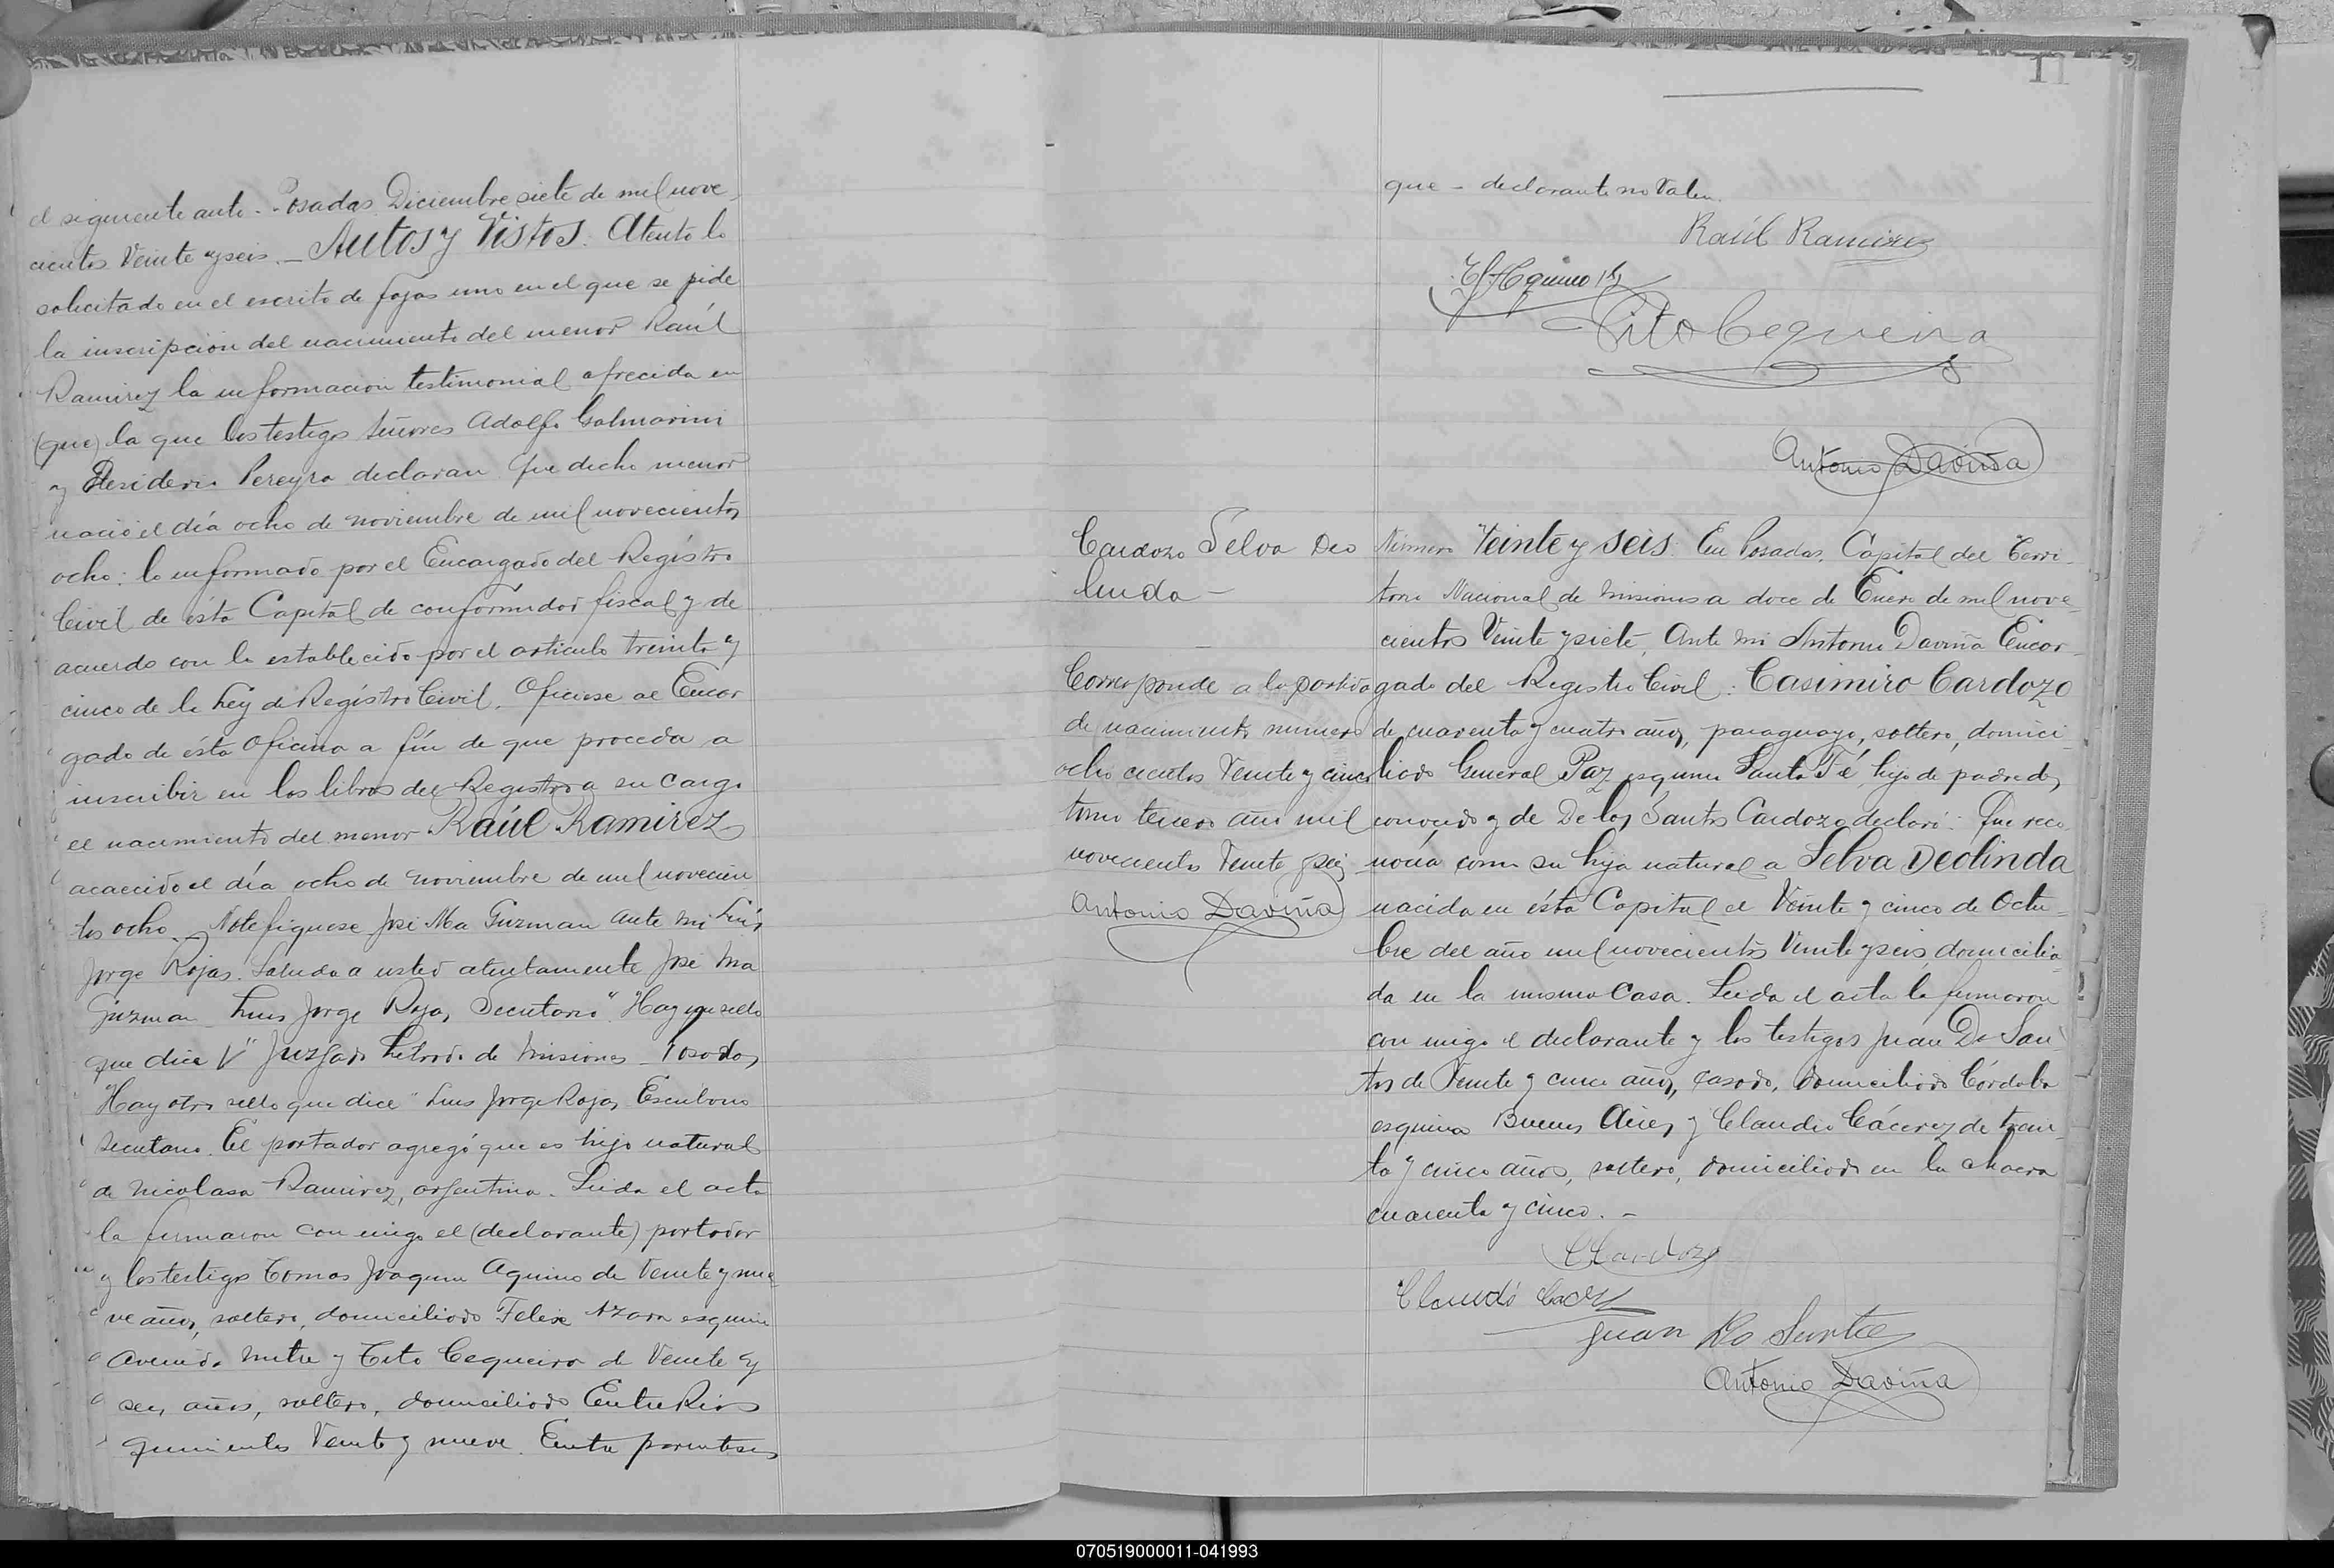 el siguiente auto. - Posadas Diciembre siete de mil nove
cientos Veinte y seis. - Autos y Vistos: Atento lo
solicitado en el escrito de fojas uno en el que se pide
la inscripción del nacimiento del menor Raúl
Ramirez la informacion testimonial ofrecida en
(que) la que los testigos señores Adolfo Galmarini
y Desiderio Pereyra declaran que dicho menor
nació el día ocho de noviembre de mil novecientos
ocho: lo informado por el Encargado del Registro
Civil de ésta Capital de conformidad fiscal y de
acuerdo con lo establecido por el articulo treinta y
cinco de la Ley de Registro Civil. Ofíciese al Encar
gado de ésta Oficina a fin de que proceda a
inscribir en los libros del Registro a su cargo
el nacimiento del menor Raúl Ramirez
acaecido el día ocho de noviembre de mil novecien
tos ocho. Notefiquese José Ma Guzman ante mi Luis
Jorge Rojas. Saluda a usted atentamente José Ma
Guzman - Luis Jorge Rojas Secretario" "Hay un sello
que dice "Juzgado Letrado de Misiones - Posadas
"Hay otro sello que dice" Luis Jorge Rojas Escribano
Secretario. El portador agregó que es hijo natural
de Nicolasa Ramirez, argentina. Leida el acta
la firmaron con migo el (declarante) portador
y los testigos Tomas Joaquin Aquino de Veinte y nue
ve años, soltero, domiciliado Felix Azara esquina
Avenida Mitre y Tito Cequeira de Veinte y
seis años, soltero, domiciliado Entre Rios
quinientos Veinte y nueve. Entre parentesis
11
que - declarante no Valen.
Raúl Ramirez
Tito Cequeira
Antonio Daviña
Cardozo Selva Deo
linda -
Corresponde a la partida
de nacimiento numero
ocho cientos Veinte y cinco
tomo tercero año mil
novecientos Veinte y seis
Antonio Daviña
Número Veinte y seis. En Posadas, Capital del Terri-
torio Nacional de Misiones a doce de Enero de mil nove-
cientos Veinte y siete, Ante mi Antonio Daviña Encar-
gado del Registro Civil: Casimiro Cardozo
de cuarenta y cuatro años, paraguayo, soltero, domici-
liado General Paz esquina Santa Fé, hijo de padre des
conocido y de De los Santos Cardozo declaró: Que reco
nocía como su hija natural a Selva Deolinda
nacida en ésta Capital el Veinte y cinco de Octu-
bre del año mil novecientos Veinte y seis, domicilia-
da en la misma Casa. Leida el acta la firmaron
con migo el declarante y los testigos Juan Do San
tos de Veinte y cinco años, casado, domiciliado Córdoba
esquina Buenos Aires y Claudio Cácerez de trein-
ta y cinco años, soltero, domiciliado en la chacra
cuarenta y cinco. -
CCardozo
Juan Do Santos
Antonio Daviña
070519000011-041993